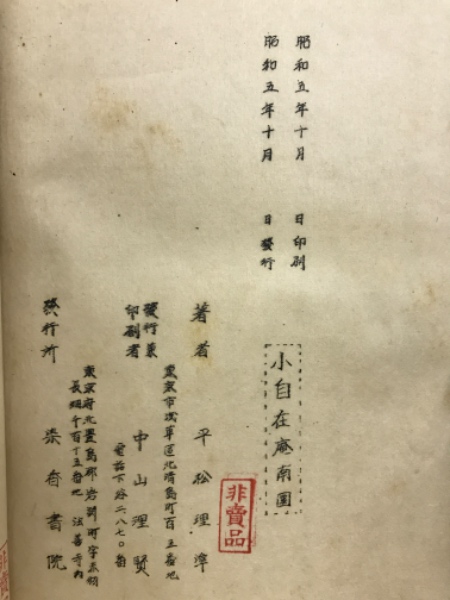 昭和五年十月 日印刷
昭和五年十月 日發行
小自在庵南園
非賣品
著者 平松理準
東京市浅草區北清島町百三番地
發行兼
印刷者 中山理賢
電話下谷二八七〇番
東京府北豊島郡岩淵町字赤羽
千百十五番地 法善寺内
發行所 染香書院
非賣